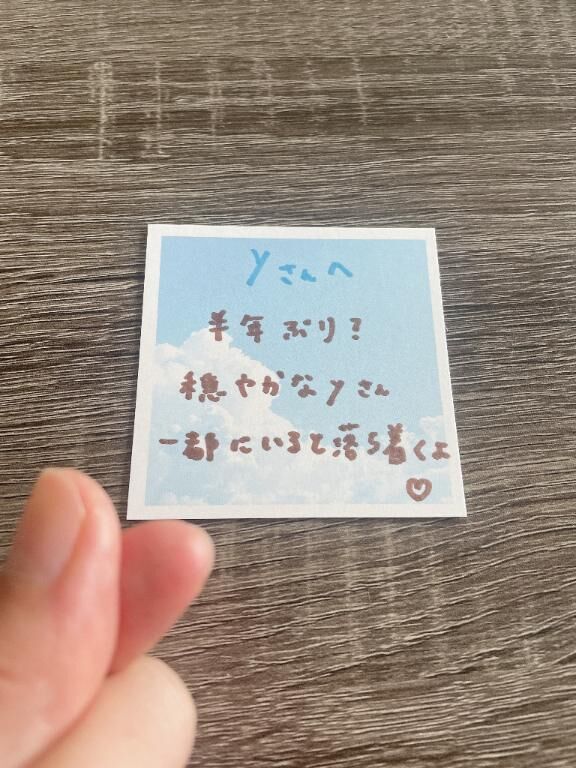 yさんへ
半年ぶり?
穏やかなyさん
一都にいると落ち着くよ
♡